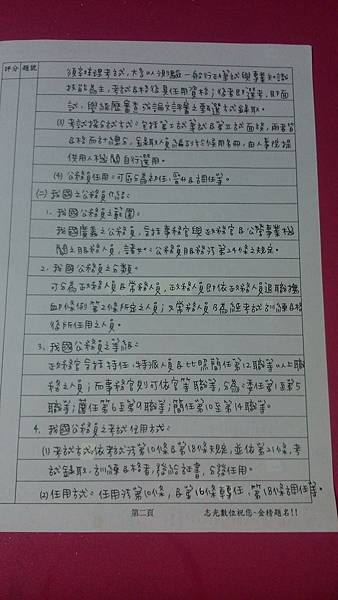 評分 題號
須辦理考試,大多以測驗一般行政筆試與專業知識
技能為主,考試及格後具任用資格;後者即選考,即面
試、與經歷書審或論文評審之甄選方式錄取。
(3) 考試採分試方式:包括第一試筆試及第二試面談,兩者皆
及格而計總分,錄取人員編列候用名冊,由人事機構
供用人機關自行選用。
(4) 公務員任用:可區分為初任、晉升及調任等。
(二) 我國之公務員介紹:
1. 我國公務員之範圍:
我國廣義之公務員,包括事務官與政務官及公營事業機
關之服務人員,含軍公:公務員服務法第24條之規定。
2. 我國公務員之分類:
可分為政務人員及常務人員,政務人員即依政務人員退職撫
卹條例第2條所定之人;又常務人員乃為經考試訓練及格
後所任用之人員。
3. 我國公務員之等級:
政務官包括特任、特派人員及比照簡任第12職等以上職
務之人員;而事務官則可依官等職等,分為:委任第1至第5
職等;薦任第6至第9職等;簡任第10至第14職等。
4. 我國公務員之考試任用方式:
(1) 考試方式:依考試法第10條及第18條規定,並依第21條,考
試錄取、訓練及格者,發給証書,分發任用。
(2) 任用方式:任用法第10條,及第16條轉任、第18條調任等。
第二頁 志光數位祝您-金榜題名!!